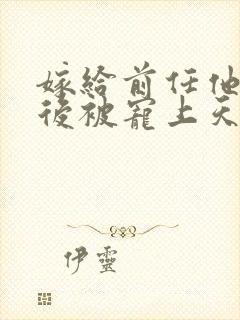 嫁给前任他
後被寵上天
伊靈